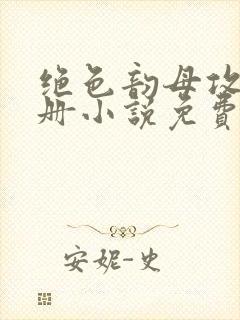 绝色韵母攻
册小说免费
安妮-史